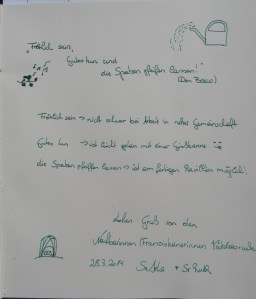 Fröhlich sein,
Gutes tun und
die Spatzen pfeifen lassen!"
(Don Bosco)
Fröhlich sein → nicht schwer bei Arbeit in netter Gemeinschaft
Gutes tun → ist leicht mit einer Gießkanne
die Spatzen pfeifen lassen → ist am fertigen möglich!
Lieben Gruß von den
Franziskanerinnen
28.3.2014